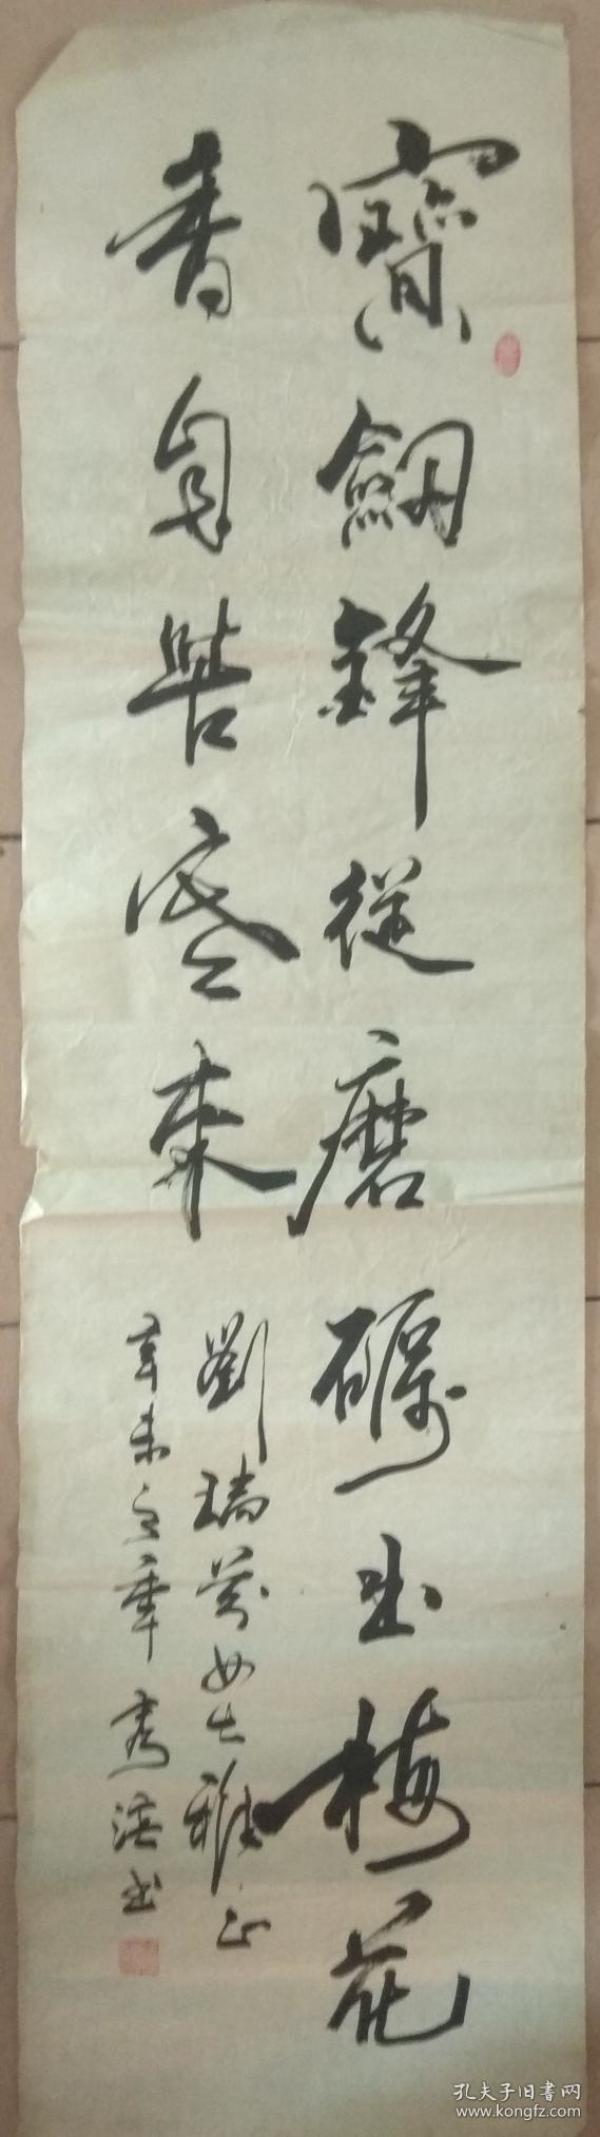 寶劔鋒從磨礪出梅花
香自苦寒來
劉瑞芳女士雅正
辛未之章 秀浜书
孔夫子旧書网
www.kongfz.com